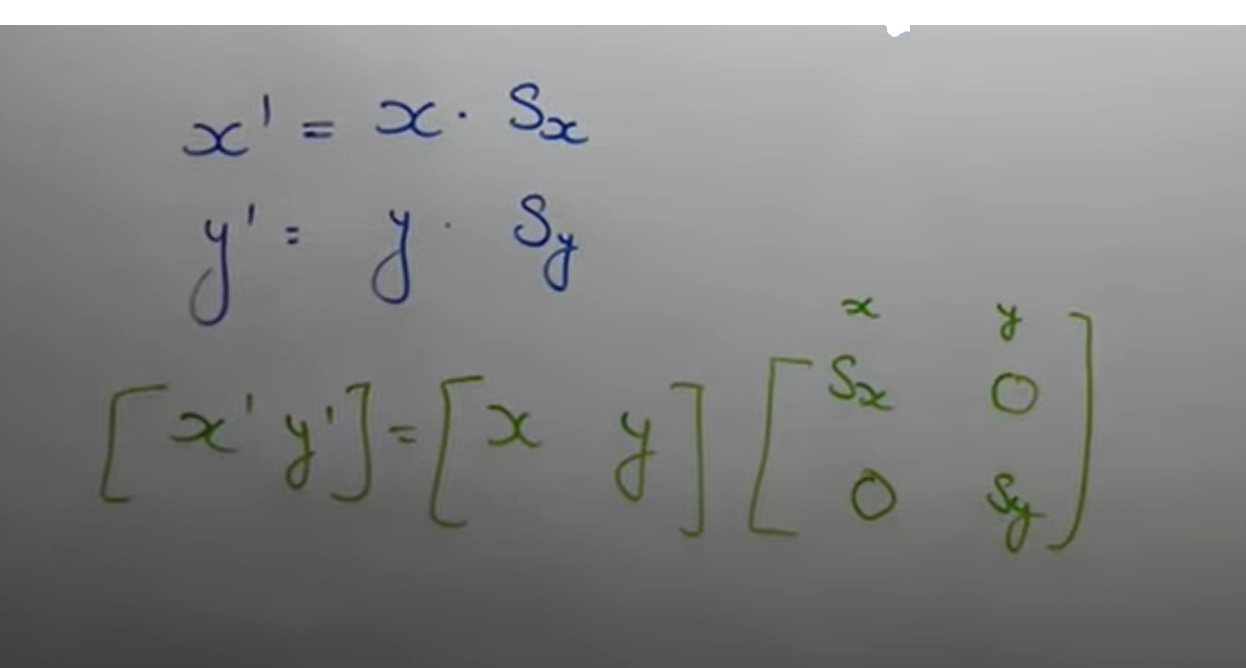 x' = x · Sx
y' = y · Sy
x y
[x' y'] = [x y] [Sx 0
0 Sy]